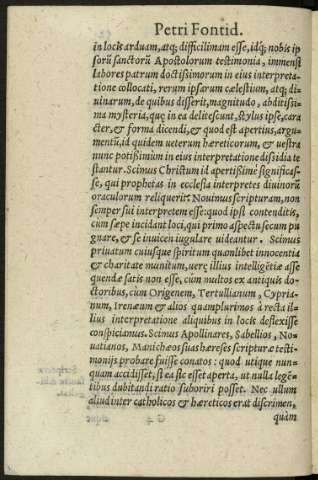 Petri Fontid.
in locis arduam, atq; difficilimam esse, idq́; nobis ip
sorũ sanctorũ Apostolorum testimonia, immensi
labores patrum doctissimorum in eius interpreta-
tione collocati, rerum ipsarum cælestium, atq; di-
uinarum, de quibus disserit, magnitudo, abditissi-
ma mysteria, quę in ea delitescunt, stylus ipse, cara
cter, & forma dicendi, & quod est apertius, argu-
mentũ, id quidem ueterum hæreticorum, & uestra
nunc potißimùm in eius interpretatione dissidia te
stantur. Scimus Christum id apertißimè significas-
se, qui prophetas in ecclesia interpretes diuinorũ
oraculorum reliquerit. Nouimus scripturam, non
semper sui interpretem esse: quod ipsi contenditis,
cùm sæpe incidant loci, qui primo aspectu secum pu
gnare, & se inuicem iugulare uideantur. Scimus
priuatum cuiusque spiritum quamlibet innocentia
& charitate munitum, uerę illius intelligẽtiæ asse
quendæ satis non esse, cùm multos ex antiquis do-
ctoribus, cùm Origenem, Tertullianum, Cypria-
num, Irenæum & alios quamplurimos à recta il-
lius interpretatione aliquibus in locis deflexisse
conspiciamus. Scimus Apollinares, Sabellios, No-
uatianos, Manichæos suas hæreses scripturæ testi-
monijs probare fuisse conatos: quod utique nun-
quam accidisset, si ea sic esset aperta, ut nulla legẽn-
tibus dubitandi ratio suboriri posset. Nec ullum
aliud inter catholicos & hæreticos erat discrimen,
quàm